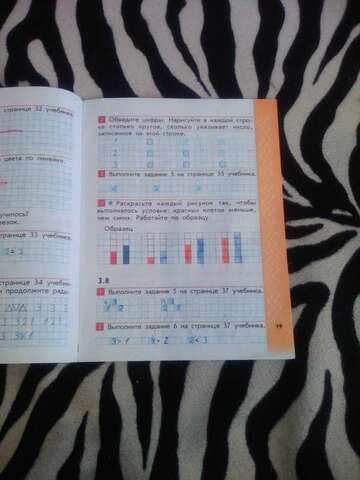 странице 32 учебника.
цвета по линейке,
училось!
езок.
странице 33 учебника.
2 = 2
странице 34 учебника
и продолжите ряды
3 3 3
2 Обведите цифры. Нарисуйте в каждой стро-
ке столько кругов, сколько указывает число,
записанное на этой строке.
1
2
3
Выполните задание 3 на странице 35 учебника.
Раскрасьте каждый рисунок так, чтобы
выполнялось условие: красных клеток меньше,
чем синих. Работайте по образцу.
Образец
3.8
1 Выполните задание 5 на странице 37 учебника.
2 Выполните задание 6 на странице 37 учебника.
3 > 1
2 < 3
19